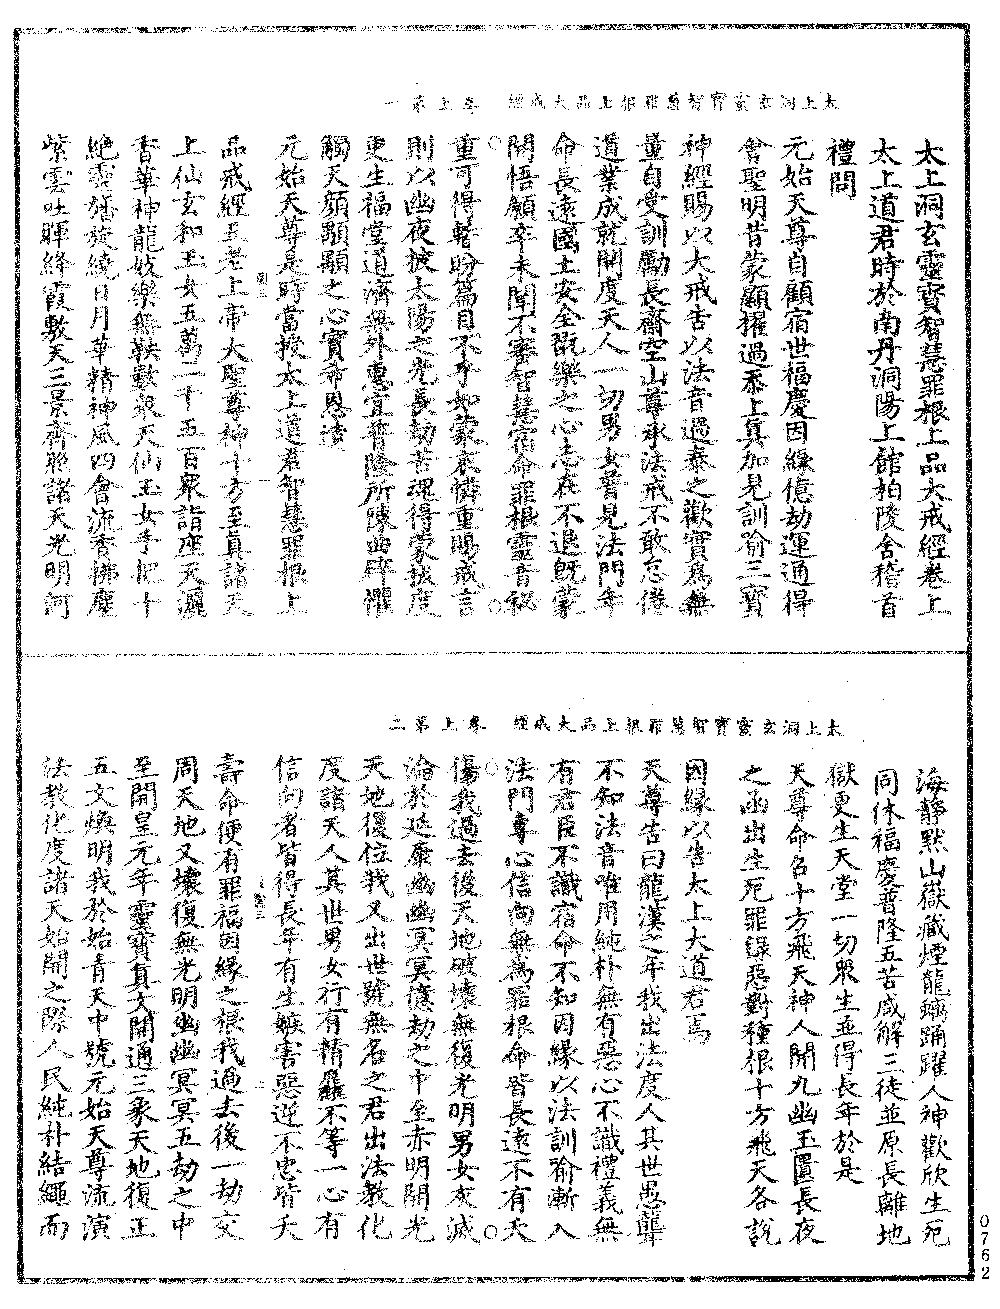 太上洞玄靈寶智慧罪根上品大戒經 卷上第一
太上洞玄靈寶智慧罪根上品大戒經卷上
太上道君時於南丹洞陽上館柏陵舍稽首
禮問
元始天尊自顧宿世福慶因緣億劫運通得
會聖明昔蒙顯擢過忝上真加見訓喻三寶
神經賜以大戒告以法音過泰之歡實為無
量自受訓勵長齋空山尊承法戒不敢怠倦
道業成就開度天人一切男女普見法門年
命長遠國土安全既樂之心志在不退既蒙
開悟願卒未聞不審智慧宿命罪根靈音祕
重可得暫盼篇目不乎如蒙哀憐重賜戒言
則以幽夜披太陽之光長劫苦魂得蒙拔度
更生福堂道濟無外惠宣普隆所陳幽碎懼
觸天顏顒顒之心實希恩瀆
元始天尊是時當授太上道君智慧罪根上
品戒經五老上帝大聖尊神十方至真諸天
上仙玄和玉女五萬二千五百眾詣座天灑
香華神龍妓樂無鞅數眾天仙玉女手把十
絕雲旛旋繞日月華精神風四會流香拂塵
紫雲吐暉絳霞敷天三景齊照諸天光明河
太上洞玄靈寶智慧罪根上品大戒經 卷上第二
海靜默山嶽藏煙龍鱗踊躍人神歡欣生死
同休福慶普隆五苦咸解三徒並原長離地
獄更生天堂一切眾生並得長年於是
天尊命召十方飛天神人開九幽玉匱長夜
之函出生死罪錄惡對種根十方飛天各說
因緣以告太上大道君焉
天尊告曰龍漢之年我出法度人其世愚聾
不知法音唯用純朴無有惡心不識禮義無
有君臣不識宿命不知因緣以法訓喻漸入
法門專心信向無為罪根命皆長遠不有夭
傷我過去後天地破壞無復光明男女灰滅
淪於延康幽幽冥冥億劫之中至赤明開光
天地復位我又出世號無名之君出法教化
度諸天人其世男女行有精麤不等一心有
信向者皆得長年有生嫉害惡逆不忠皆夭
壽命便有罪福因緣之根我過去後一劫交
周天地又壞復無光明幽幽冥冥五劫之中
至開皇元年靈寶真文開通三象天地復正
五文煥明我於始青天中號元始天尊流演
法教化度諸天始開之際人民純朴結繩而
0762